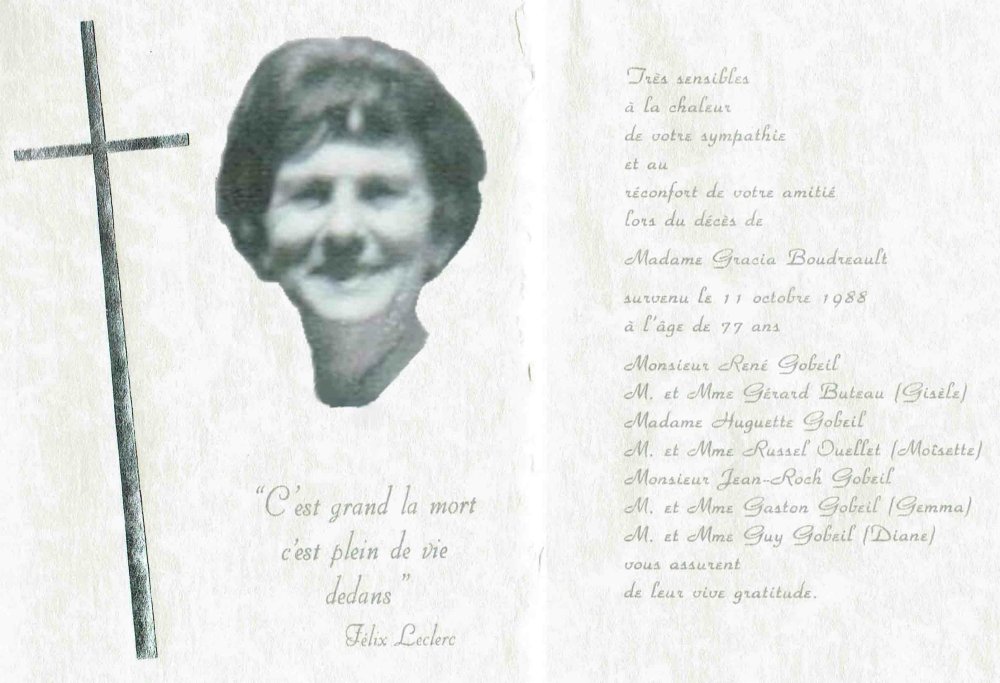 “C'est grand la mort
c'est plein de vie
dedans”
Félix Leclerc
Très sensibles
à la chaleur
de votre sympathie
et au
réconfort de votre amitié
lors du décès de
Madame Gracia Boudreault
survenu le 11 octobre 1988
à l'âge de 77 ans
Monsieur René Gobeil
M. et Mme Gérard Buteau (Gisèle)
Madame Huguette Gobeil
M. et Mme Russel Ouellet (Moïsette)
Monsieur Jean-Roch Gobeil
M. et Mme Gaston Gobeil (Gemma)
M. et Mme Guy Gobeil (Diane)
vous assurent
de leur vive gratitude.